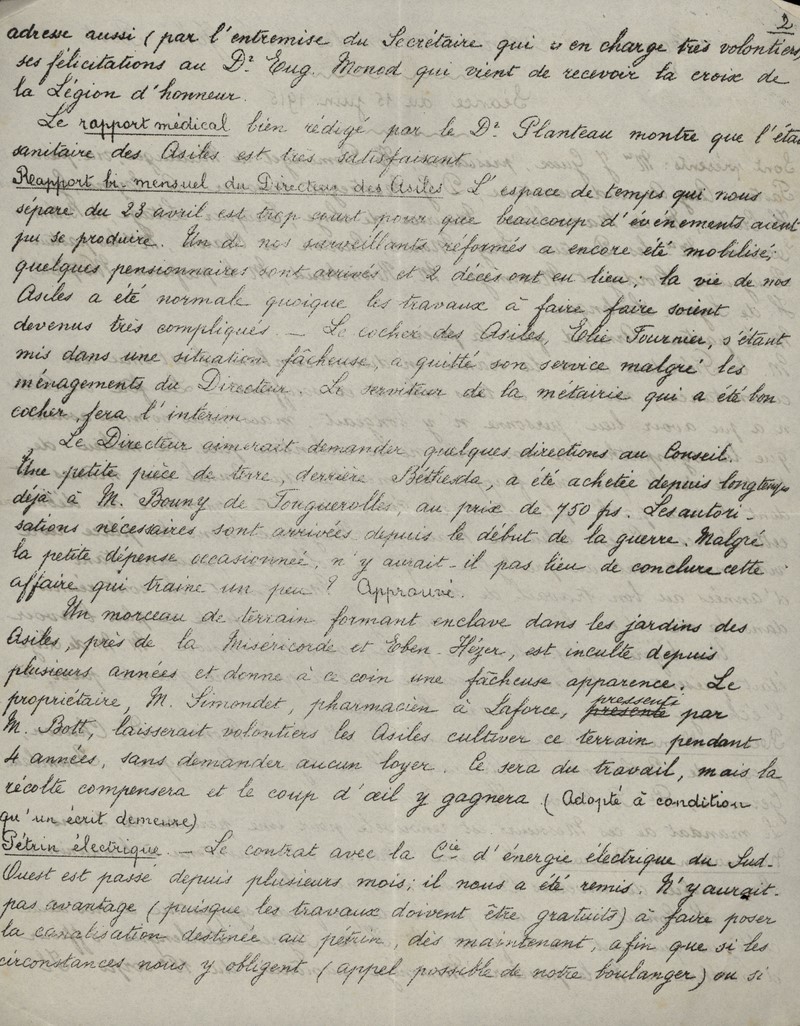 2
adresse aussi (par l'entremise du Secrétaire qui s'en charge très volontiers)
ses félicitations au Dr. Eug. Monod qui vient de recevoir la croix de
la Légion d'honneur.
Le rapport médical bien rédigé par le Dr. Planteau montre que l'état
sanitaire des Asiles est très satisfaisant
Reapport bi-mensuel du Directeur des Asiles. L'espace de temps qui nous
sépare du 23 avril est trop court pour que beaucoup d'événements aient
pu se produire. Un de nos surveillants réformés a encore été mobilisé;
quelques pensionnaires sont arrivés et 2 décès ont eu lieu; la vie de nos
Asiles a été normale quoique les travaux à faire faire soient
devenus très compliqués. — Le cocher des Asiles, Elie Fournier, s'étant
mis dans une situation fâcheuse, a quitté son service malgré les
ménagements du Directeur. Le serviteur de la métairie qui a été bon
cocher, fera l'intérim.
Le Directeur aimerait demander quelques directions au Conseil.
Une petite pièce de terre, derrière Béthesda, a été achetée depuis longtemps
déjà à M. Bouny de Tonguerolles, au prix de 750 fs. Les autori-
sations nécessaires sont arrivées depuis le début de la guerre. Malgré
la petite dépense occasionnée, n'y aurait-il pas lieu de conclure cette
affaire qui traine un peu? Approuvé.
Un morceau de terrain formant enclave dans les jardins des
Asiles, près de la Miséricorde et Eben-Hézer, est inculte depuis
plusieurs années et donne à ce coin une fâcheuse apparence. Le
propriétaire, M. Simondet, pharmacien à Laforce, présenté pressenti par
M. Bott, laisserait volontiers les Asiles cultiver ce terrain pendant
4 années, sans demander aucun loyer. Ce sera du travail, mais la
récolte compensera et le coup d'œil y gagnera (Adopté à condition
qu'un écrit demeure)
Pétrin électrique. — Le contrat avec la Cie d'énergie électrique du Sud-
Ouest est passé depuis plusieurs mois; il nous a été remis. N'y aurait-
pas avantage (puisque les travaux doivent être gratuits) à faire poser
la canalisation destinée au pétrin, dès maintenant, afin que si les
circonstances nous y obligent (appel possible de notre boulanger) ou si